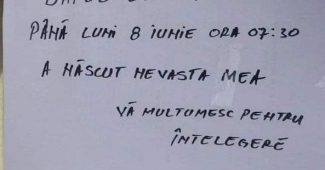 PÂNĂ LUNI 8 IUNIE ORA 07:30
A NĂSCUT NEVASTA MEA
VĂ MULTUMESC PENTRU
ÎNTELEGERE